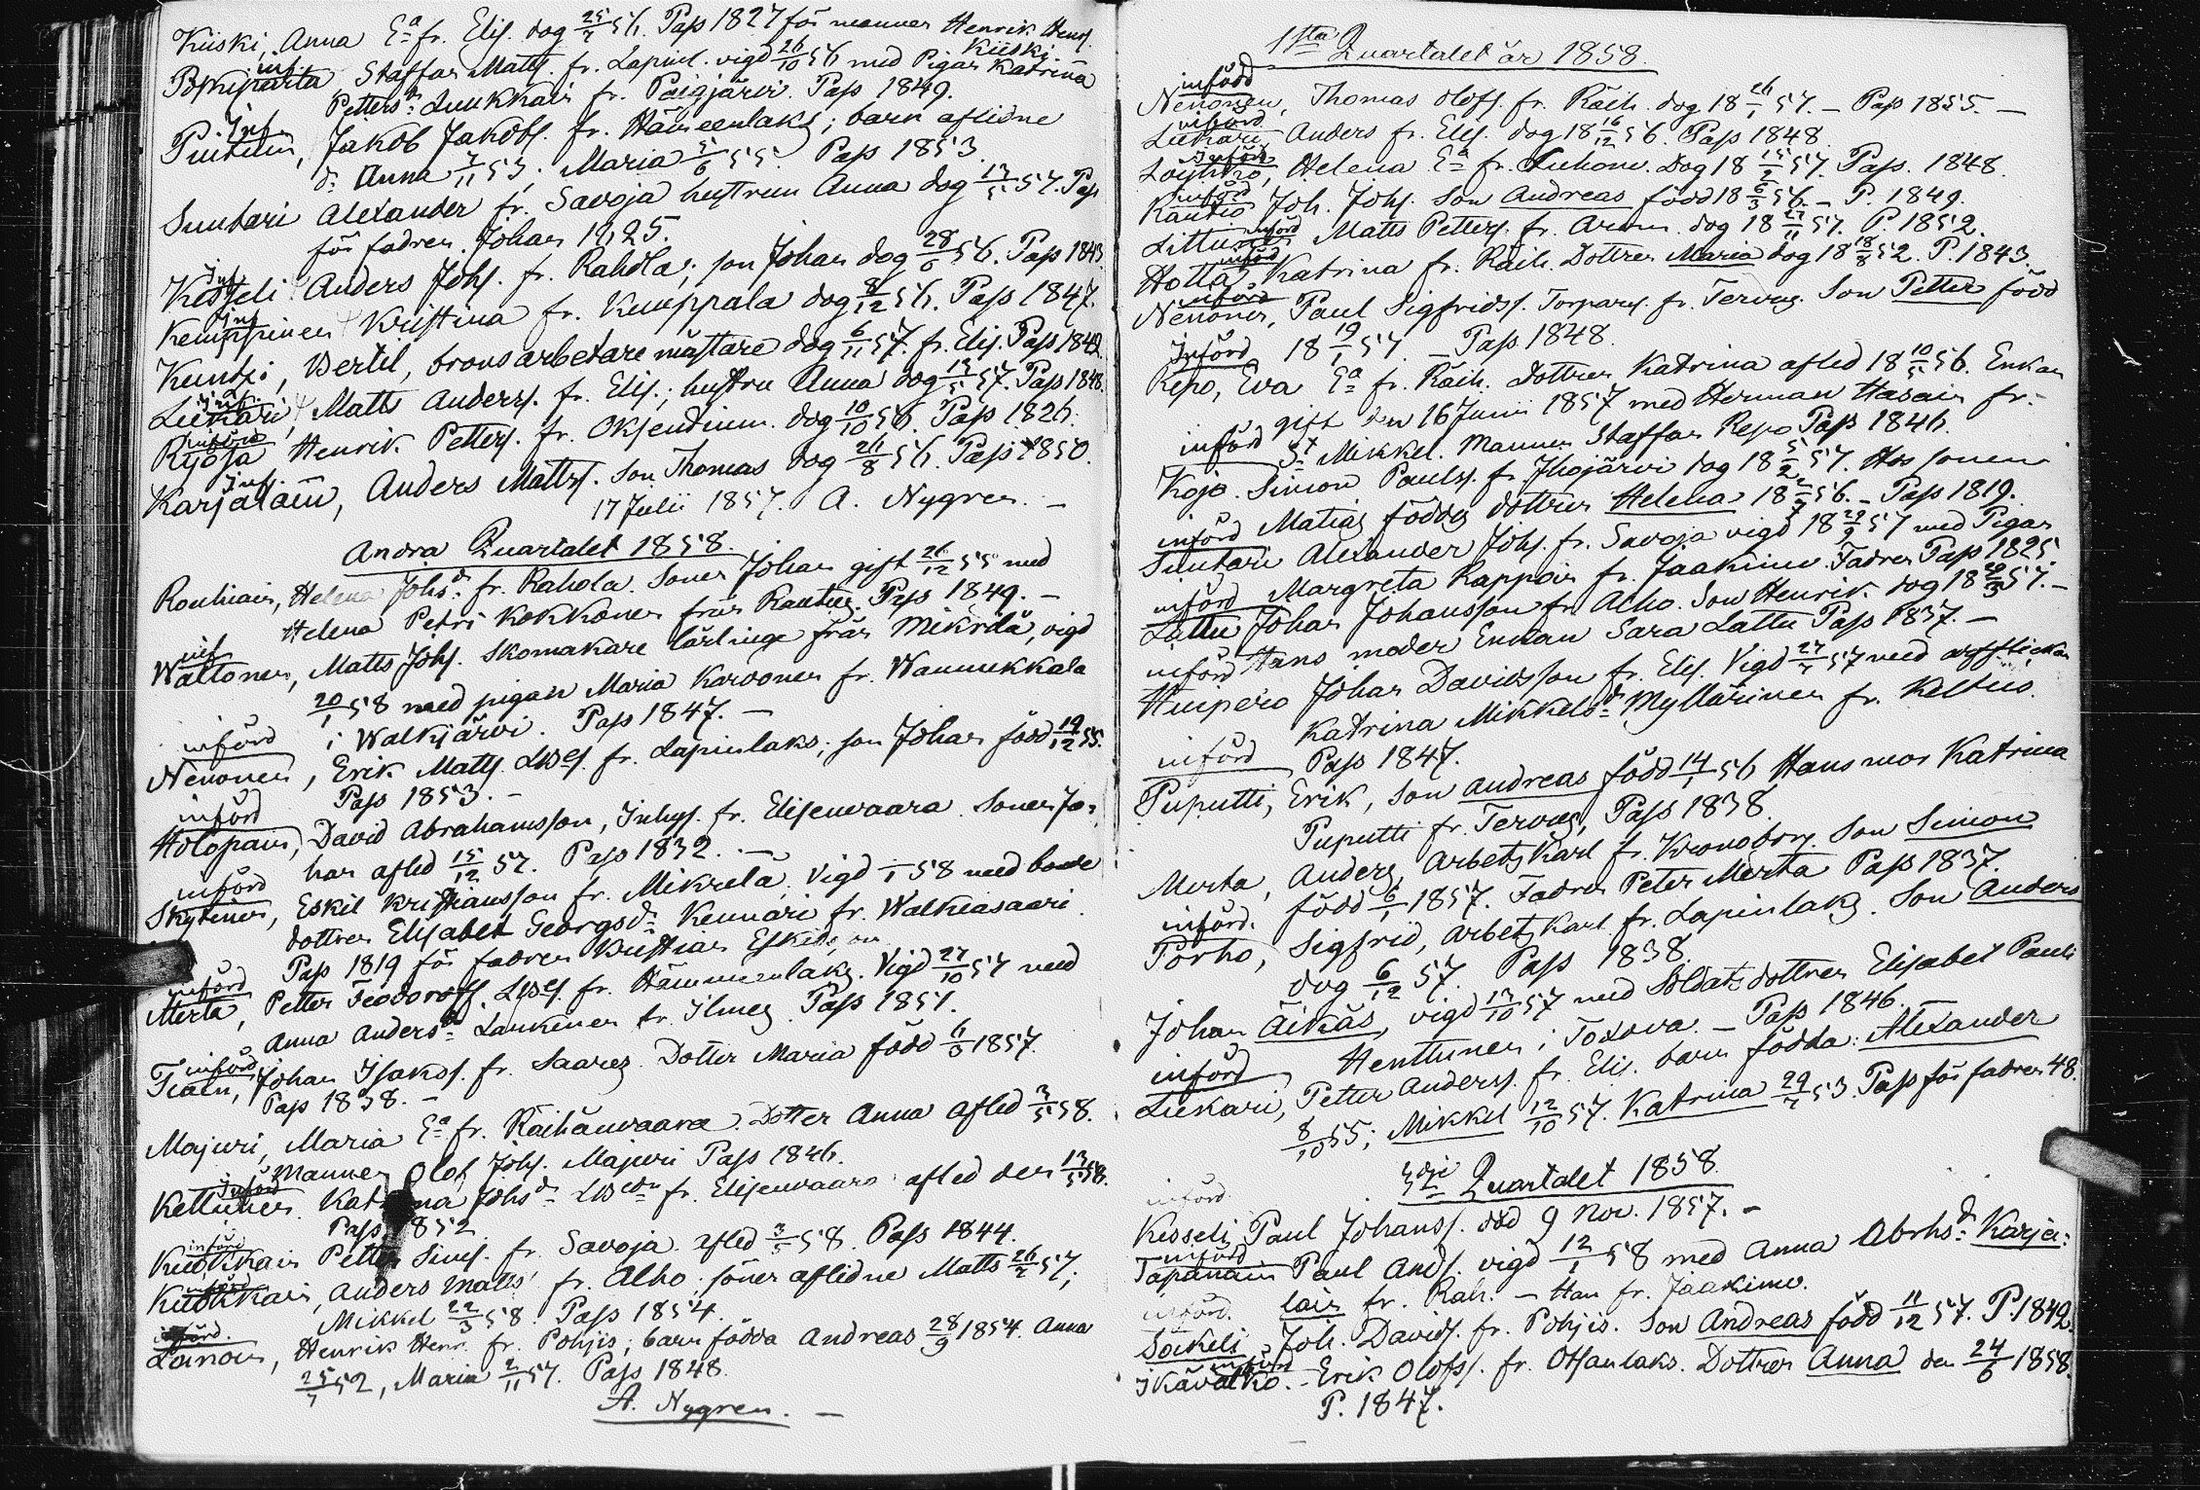 Kiiski, Anna Ea fr. Elis. dog 25/4 56. Pass 1827 för mannen Henrik Henrs.
Kiiski.
inf.
Staffan Matts. fr. Lapinl. vigd 26/10 56 med Pigan Katrina
Pettersdr Luukkain fr. Paigjärvi. Pass 1849.
Inf.
Puitulin, Jakob Jakobs. fr. Hämeenlaks; barn aflidne
dr Anna 7/11 53; Maria 5/6 55. Pass 1853.
Suutari Alexander fr. Savoja hustrun Anna dog 13/5 57. Pass
för fadren Johan 1825.
inf
Kesseli Anders Johs. fr. Rahola; son Johan dog 28/6 56. Pass 1843.
inf
Kemppinen Kristina fr. Kumppala dog 8/12 56. Pass 1847.
Kuntzi, Bertil, bronsarbetare mästare dog 6/11 57. fr. Elis. Pass 1842.
inf.
Liekari, Matts Anders. fr. Elis.; hustru Anna dog 13/5 57. Pass 1848.
införd
Ryösä Henrik Petters. fr. Oksendinm. dog 10/10 56. Pass 1826.
Inf.
Karjalain, Anders Matts. son Thomas dog 26/8 56. Pass 1850.
17 Julii 1857. A. Nygren. —
Andra Quartalet 1858.
Rouhiain, Helena Johsdr fr. Rahola. Sonen Johan gift 26/12 55 med
Helena Petri Kokkonen från Rautus. Pass 1849. —
inf
Waltonen, Matts Johs. Skomakare lärlinge från Mikrilä, vigd
20/1 58 med pigan Maria Karvonen fr. Wanukkala
i Walkjärvi. Pass 1847. —
införd
Nenonen, Erik Matts. Lbdes. fr. Lapinlaks; son Johan född 19/12 55.
Pass 1853. —
införd
Holopain, David Abrahamsson, Inhys. fr. Elisenvaara. Sonen Jo-
han afled 15/12 57. Pass 1832. —
införd
Skyttinen, Eskil Kristiansson fr. Mikrelä, vigd /1 58 med bonde
dottren Elisabet Georgsdr Kennari fr. Walkiasaari
Pass 1819 för fadren Kristian Eskelsson
införd
Merta, Petter Feodoroff. Lbdes. fr. Hämmeenlaks. Vigd 27/10 57 med
Anna Andersdr Laukinen fr. Ilmes. Pass 1851.
införd
Tiain, Johan Isaks. fr. Saares. Dotter Maria född 6/6 1857.
Pass 1838. —
Majuri, Maria Ea fr. Räihänvaara. Dotter Anna afled 3/5 58.
Mannen Olof Johs. Majuri Pass 1846.
Införd
Kettunen Katrina Johsdr fr. Elisenvaara afled den 13/5 58.
Pass 1852
införd
Kuokkain Petter Sims. fr. Savoja afled 3/5 58. Pass 1844.
införd
Kuokkain, Anders Matts fr. Alho; söner aflidne Matts 26/2 57;
Mikkel 22/3 58. Pass 1854.
införd.
Henrik Henr. fr. Pohjis; barn födda Andreas 28/9 1854. Anna
25/7 52, Maria 2/11 57. Pass 1848.
A. Nygren. —
1sta Quartalet år 1858.
införd
Nenonen, Thomas Olofs. fr. Räih. dog 18 26/1 57. — Pass 1855. —
införd
Liekari Anders fr. Elis. dog 18 16/12 56. Pass 1848
införd
Helena Ea fr. dog 18 15/2 57. Pass. 1848.
införd
Rautio Joh. Johs. Son Andreas född 18 6/3 56. — P. 1849.
införd
Matts Petters. fr. dog 18 27/11 57. P. 1852.
införd
Hotta, Katrina fr. Räih. Dottren Maria dog 18 18/8 52. P. 1843.
införd
Nenonen, Paul Sigfrids. Torpares. fr. Tervus. Son Petter född
18 19/1 57. — Pass 1848.
Införd
Repo, Eva Ea fr. Räih. Dottren Katrina afled 18 10/5 56. Enkan
gift den 16 Junii 1857 med Herman Hasain fr.
St Mikkel. Mannen Staffan Repo Pass 1846.
införd
Kojo. Simon Pauls. fr. Ihojärvi dog 18 5/2 57. Hos sonen
Matias föddes dottren Helena 18 56. — Pass 1819.
införd
Suutari Alexander Johs. fr. Savoja vigd 18 29/9 57 med Pigan
Margreta Rappoin fr. Jaakimv. Fadren Pass 1825.
införd
Lattu Johan Johansson fr. Alho. Son Henrik dog 18 57. —
Hans moder Enkan Sara Lattu Pass 1837. —
införd
Huipero Johan Davidsson fr. Elis. Vigd 27/ 57 med
Katrina Mikkelsdr Myllärinen fr. Keltus.
införd
Pass 1847.
Puputti, Erik, Son Andreas född 14/1 56, Hans mor Katrina
Puputti fr. Tervus, Pass 1838.
Merta, Anders, arbets Karl fr. Kronoborg. Son Simon
född 6/1 1857. Fadren Peter Merta Pass 1837.
införd.
Porho, Sigfrid, arbets Karl fr. Lapinlaks. Son Anders
dog 6/12 57. Pass 1838.
Johan Äikäs, vigd 13/10 57 med Soldats dottren Elisabet Pauli
Henttunen i Toxova. — Pass 1846. —
införd
Liekari, Petter Anders. fr. Elis. barn födda: Alexander
8/10 55; Mikkel 12/10 57. Katrina 29/7 53. Pass för fadren 48.
3dje Quartalet 1858.
införd
Kesseli Paul Johans. död 9 Nov. 1857. —
införd
Tapanain Paul Ands. vigd 12/1 58 med Anna Abrhsdr Karja-
lain fr. Rah. — Han fr. Jaakimv.
införd.
Söikeli Joh. Davids. fr. Pohjis. Son Andreas född 11/12 57. P. 1842.
införd
Ikävalko. Erik Olofss. fr. Otsanlaks. Dottren Anna den 24/6 1858.
P. 1847.